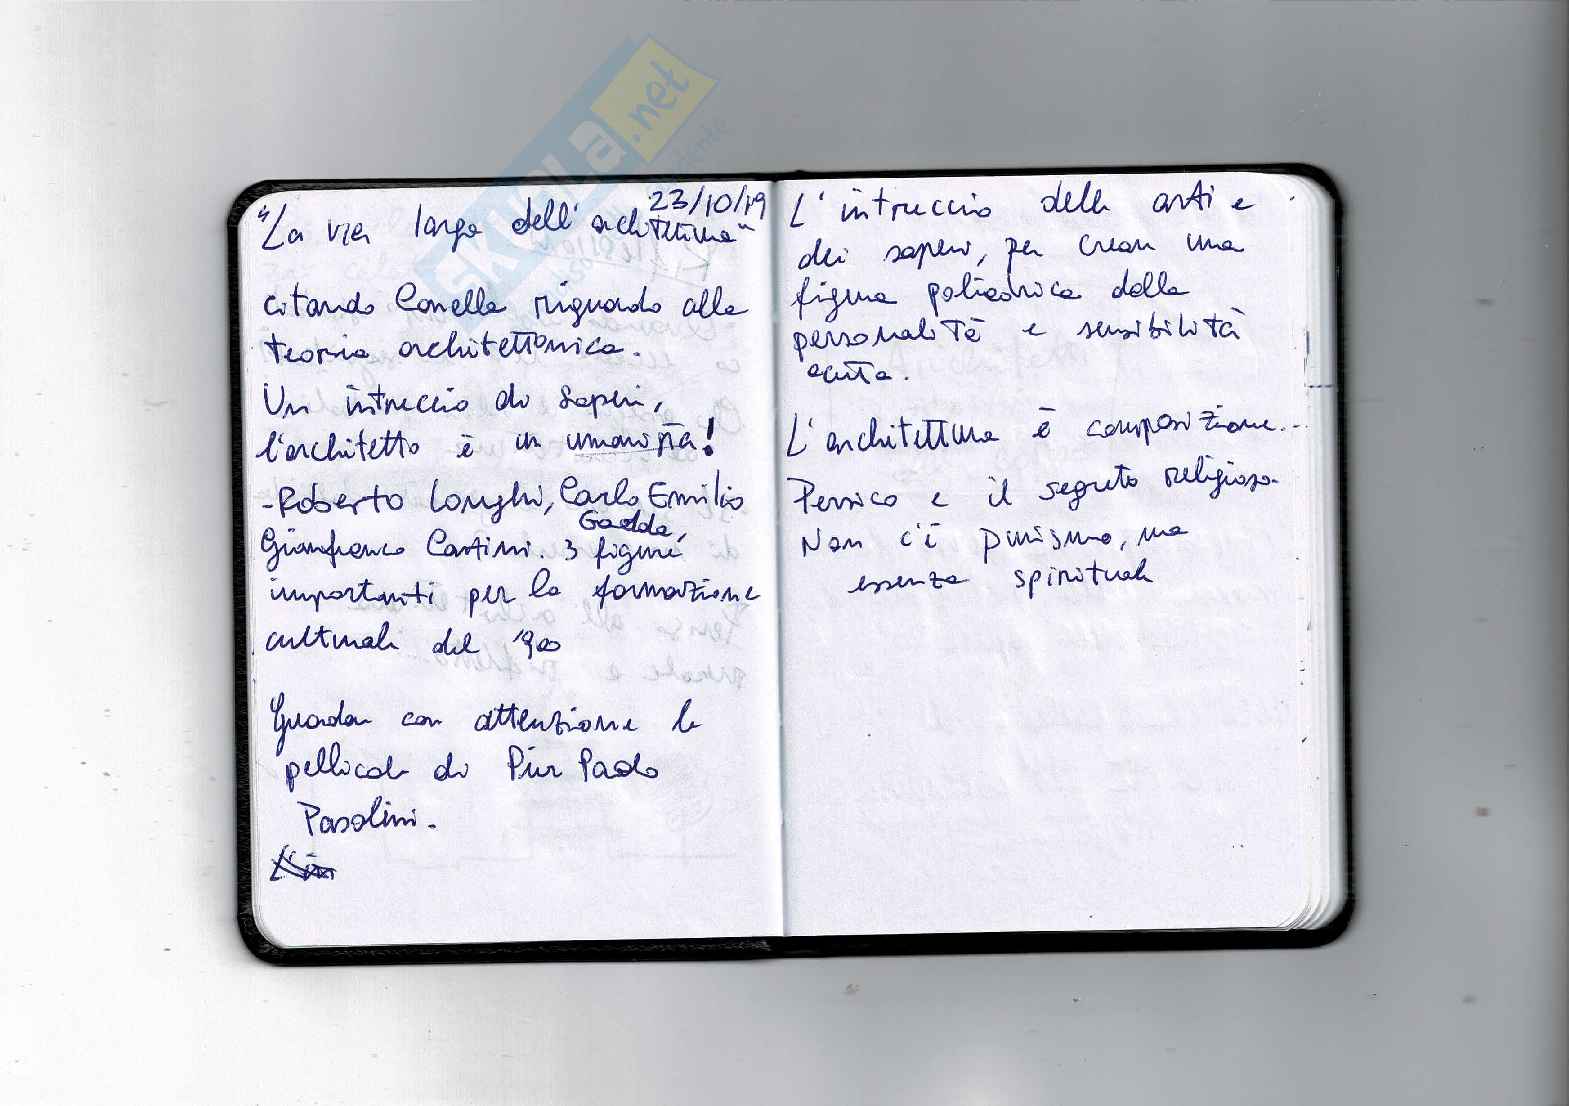 23/10/19
"La via larga dell'architettura"
citando Canella riguardo alla
teoria architettonica.
Un intreccio di saperi,
l'architetto è un umanista!
-Roberto Longhi, Carlo Emilio
Gadda,
Gianfranco Contini. 3 figure
importanti per la formazione
culturale del '900
Guardare con attenzione le
pellicole di Pier Paolo
Pasolini.
L'intreccio delle arti e
dei saperi, per creare una
figura poliedrica dalla
personalità e sensibilità
acuta.
L'architettura è composizione...
Persico e il segreto religioso.
Non c'è purismo, ma
essenza spirituale
skuola.net